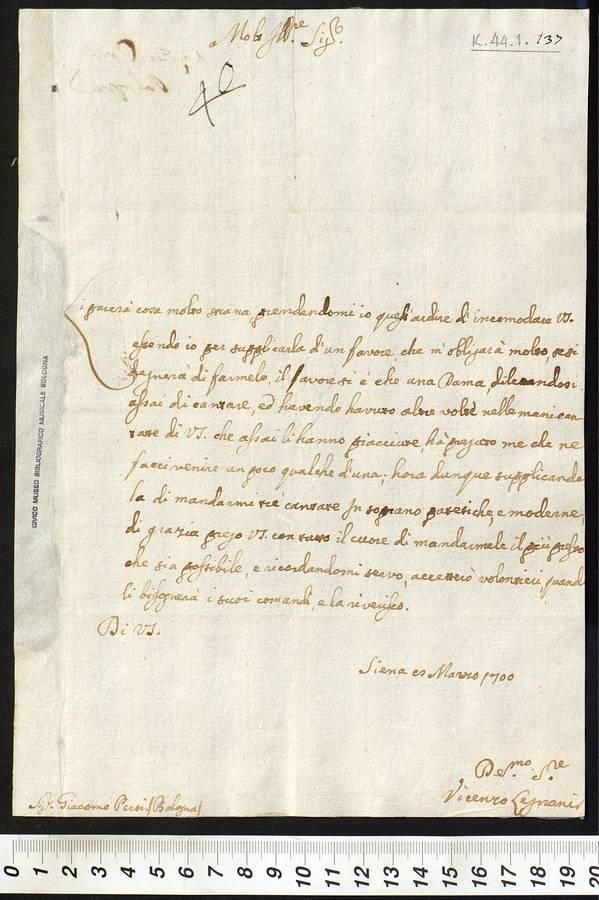 K.44.1.137
Mol.to Ill.re Sig.r
40
Li parerà cosa molto strana, prendendomi io quest'ardire d'incomodare VS.
essendo io per supplicarla d'un favore che m'obligarà molto, se si
degnerà di farmelo, il favore si è che una Dama, dilettandosi
assai di cantare, ed havendo havuto altre volte nelle mani can-
tate di VS. che assai li hanno piacciute, hà pregato me che ne
facci venire un poco qualche d'una; hora dunque supplicando
la di mandarmi trè cantate In soprano patetiche, e moderne,
di grazia prego VS. con tutto il cuore di mandarmele il più presto
che sia possibile, e ricordandomi servo, accetterò volontieri, quando
li bisognerà i suoi comandi, e la riverisco.
Di VS.
Siena Marzo 1700
De.mo S.re
Vicenzo Legnani
Sig.r Giacomo Perti (Bologna)
CIVICO MUSEO BIBLIOGRAFICO MUSICALE BOLOGNA
0 1 2 3 4 5 6 7 8 9 10 11 12 13 14 15 16 17 18 19 20